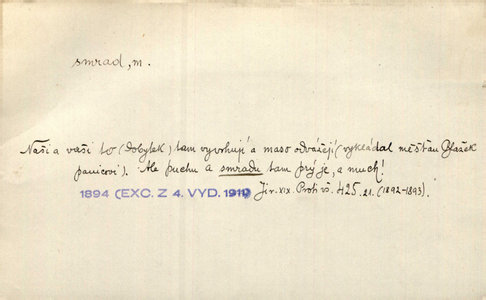 smrad, m.
Naši a vaši to (dobytek) tam vyvrhují a maso odvážejí (vykládal měšťan Blažek
panicovi). Ale puchu a smradu tam prý je, a much!
1894 (EXC. Z 4. VYD. 1911) Jir. XIX. Proti vš. 425. 21. (1892-1893).